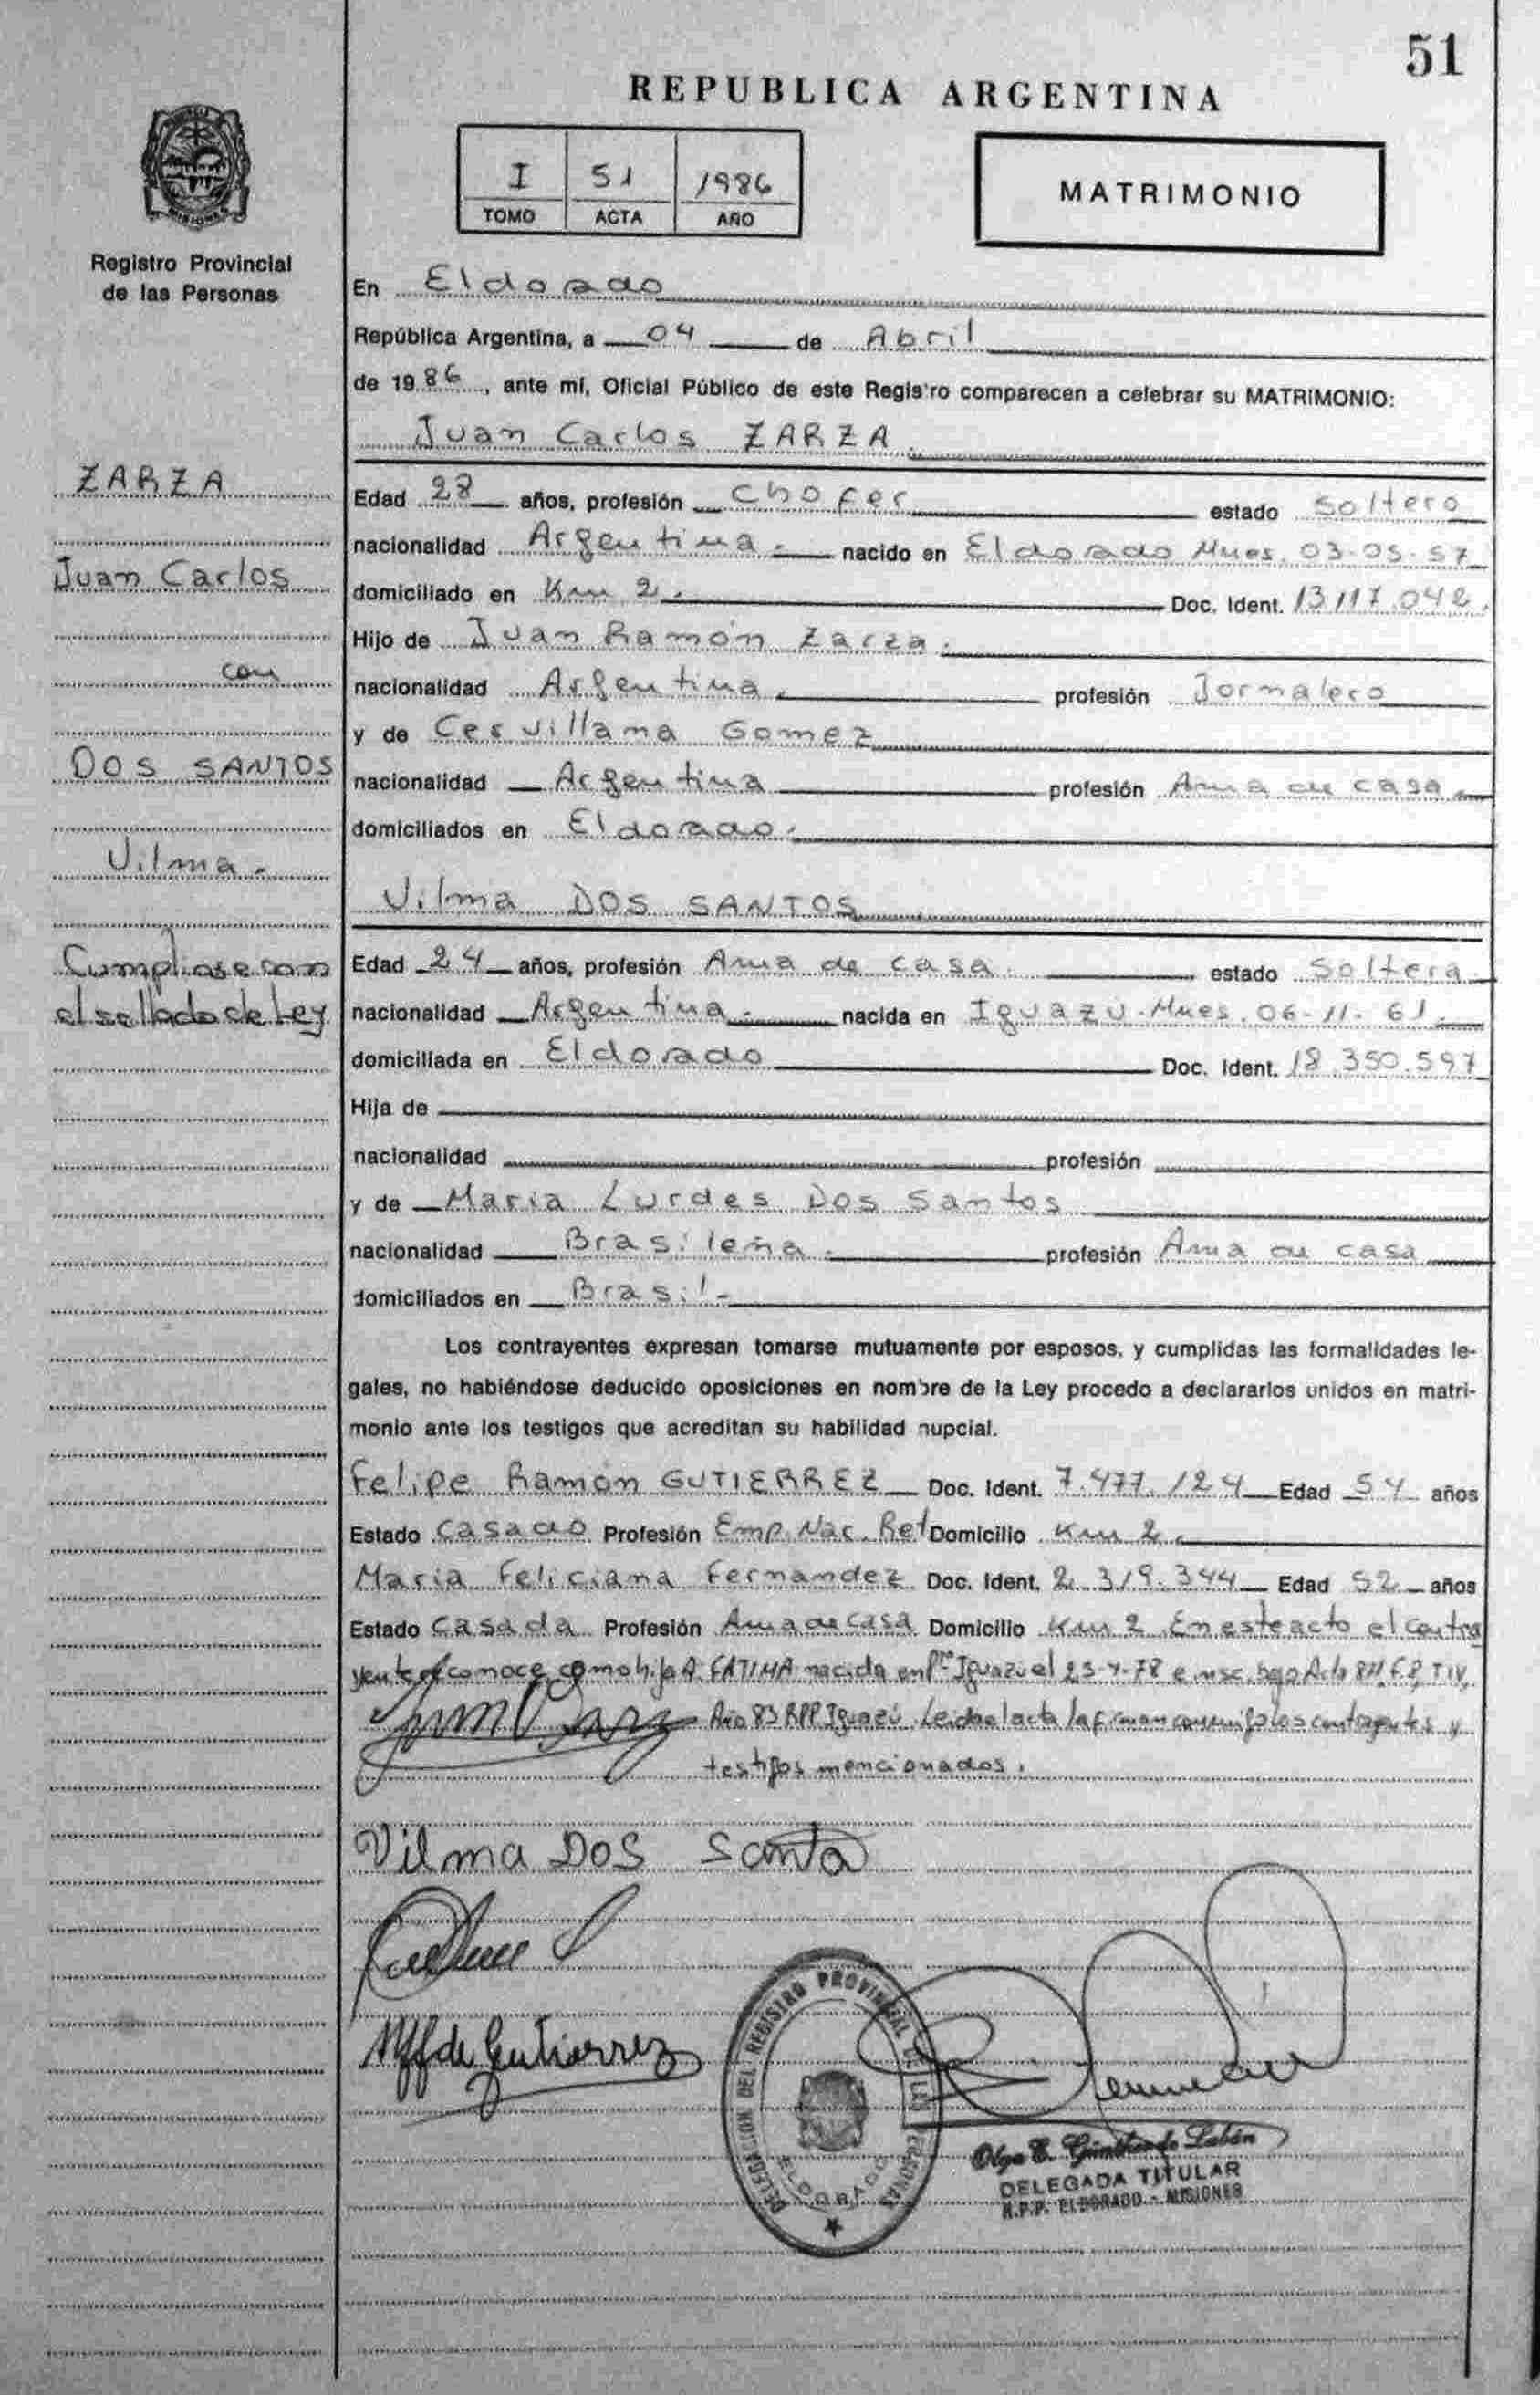 51
REPUBLICA ARGENTINA
I 51 1986
TOMO ACTA AÑO
MATRIMONIO
MISIONES
Registro Provincial
de las Personas
En Eldorado
República Argentina, a 04 de Abril
de 1986, ante mí, Oficial Público de este Registro comparecen a celebrar su MATRIMONIO:
Juan Carlos ZARZA
ZARZA
Juan Carlos
con
DOS SANTOS
Vilma.
Cumpliose con
el sellado de Ley
Edad 28 años, profesión Chofer estado Soltero
nacionalidad Argentina.- nacido en Eldorado Mnes. 03-05-57
domiciliado en Km 2. Doc. Ident. 13.117.042.
Hijo de Juan Ramón Zarza.
nacionalidad Argentina. profesión Jornalero
y de Cesvillana Gomez
nacionalidad Argentina profesión Ama de casa.
domiciliados en Eldorado.
Vilma DOS SANTOS
Edad 24 años, profesión Ama de casa. estado Soltera.
nacionalidad Argentina.- nacida en Iguazú-Mnes. 06-11-61.
domiciliada en Eldorado Doc. Ident. 18.350.597
Hija de
nacionalidad profesión
y de Maria Lurdes Dos Santos
nacionalidad Brasileña.- profesión Ama de casa
domiciliados en Brasil.-
Los contrayentes expresan tomarse mutuamente por esposos, y cumplidas las formalidades le-
gales, no habiéndose deducido oposiciones en nombre de la Ley procedo a declararlos unidos en matri-
monio ante los testigos que acreditan su habilidad nupcial.
Felipe Ramón GUTIERREZ Doc. Ident. 7.477.124 Edad 54 años
Estado Casado Profesión Emp. Nac. Ret Domicilio Km 2.
Maria Feliciana Fernandez Doc. Ident. 2.319.344 Edad 52 años
Estado Casada Profesión Ama de casa Domicilio Km 2. En este acto el contra
yente conoce como hija A. FATIMA nacida en Pto Iguazú el 23-4-78 e insc. bajo Acta F.8, T.IV,
Año 83 RPP Iguazú. Leida el acta la firman conmigo los contrayentes y
testigos mencionados.
Vilma DOS Santo
Mf de Gutierrez
DELEGACION DEL REGISTRO PROVINCIAL DE LAS PERSONAS
ELDORADO
Olga E. Günther de Labán
DELEGADA TITULAR
R.P.P. ELDORADO - MISIONES